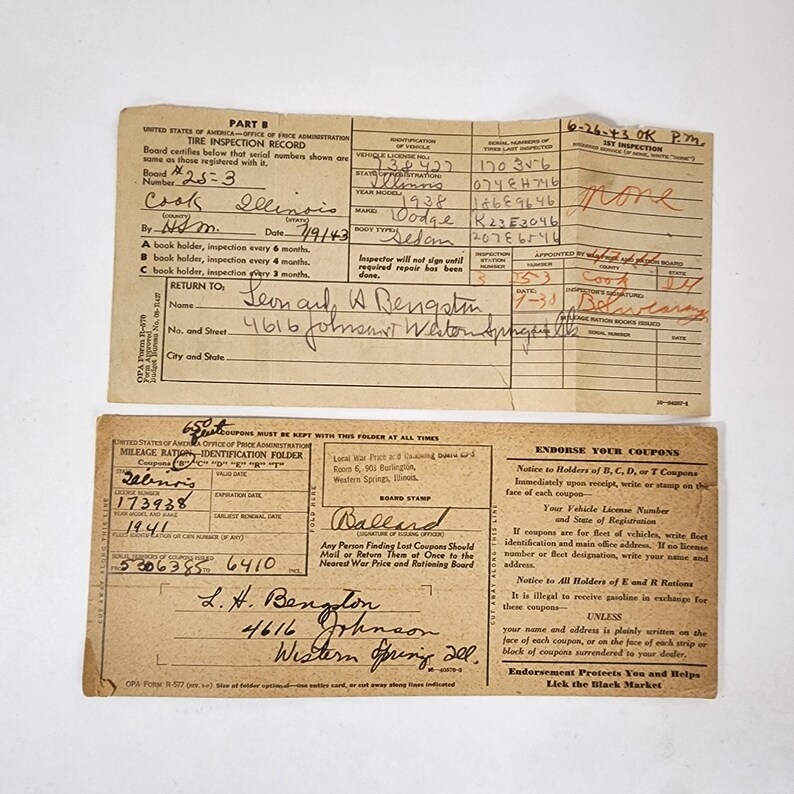 PART B
UNITED STATES OF AMERICA—OFFICE OF PRICE ADMINISTRATION
TIRE INSPECTION RECORD
Board certifies below that serial numbers shown are
same as those registered with it.
Board #
Number 25-3
Cook Illinois
(COUNTY) (STATE)
By H.S.M. Date 7/9/43
A book holder, inspection every 6 months.
B book holder, inspection every 4 months.
C book holder, inspection every 3 months.
IDENTIFICATION
OF VEHICLE
VEHICLE LICENSE NO.:
738427
STATE OF REGISTRATION:
Illinois
YEAR MODEL:
1938
MAKE:
Dodge
BODY TYPE:
Sedan
SERIAL NUMBERS OF
TIRES LAST INSPECTED
170356
074EH746
186E9646
K23E3046
207E6546
Inspector will not sign until
required repair has been
done.
6-26-43 OK P.M.
1ST INSPECTION
REQUIRED SERVICE (IF NONE, WRITE "NONE")
none
APPOINTED BY WAR PRICE AND RATION BOARD
INSPECTION
STATION
NUMBER
NUMBER COUNTY STATE
3 25-3 Cook Ill
DATE: INSPECTOR'S SIGNATURE:
7-30
MILEAGE RATION BOOKS ISSUED
SERIAL NUMBER DATE
RETURN TO:
Name Leonard H Bengston
No. and Street 4616 Johnson Western Springs Ills
City and State
OPA Form R-570
Form Approved
Budget Bureau No. 08-R427
16-34287-1
650
COUPONS MUST BE KEPT WITH THIS FOLDER AT ALL TIMES
UNITED STATES OF AMERICA OFFICE OF PRICE ADMINISTRATION
MILEAGE RATION—IDENTIFICATION FOLDER
Coupons "B" "C" "D" "E" "R" "T"
STATE
Illinois
VALID DATE
LICENSE NUMBER
173938
EXPIRATION DATE
YEAR MODEL AND MAKE
1941
EARLIEST RENEWAL DATE
FLEET IDENTIFICATION OR CWN NUMBER (IF ANY)
SERIAL NUMBERS OF COUPONS ISSUED
FROM 5306385 TO 6410 INCL.
FOLD HERE
CUT AWAY ALONG THIS LINE
Local War Price and Rationing Board
Room 6, 903 Burlington,
Western Springs, Illinois.
BOARD STAMP
Ballard
(SIGNATURE OF ISSUING OFFICER)
Any Person Finding Lost Coupons Should
Mail or Return Them at Once to the
Nearest War Price and Rationing Board
L. H. Bengston
4616 Johnson
Western Spring Ill.
OPA FORM R-577 Size of folder optional—use entire card, or cut away along lines indicated
CUT AWAY ALONG THIS LINE
ENDORSE YOUR COUPONS
Notice to Holders of B, C, D, or T Coupons
Immediately upon receipt, write or stamp on the
face of each coupon—
Your Vehicle License Number
and State of Registration
If coupons are for fleet of vehicles, write fleet
identification and main office address. If no license
number or fleet designation, write your name and
address.
Notice to All Holders of E and R Rations
It is illegal to receive gasoline in exchange for
these coupons—
UNLESS
your name and address is plainly written on the
face of each coupon, or on the face of each strip or
block of coupons surrendered to your dealer.
Endorsement Protects You and Helps
Lick the Black Market